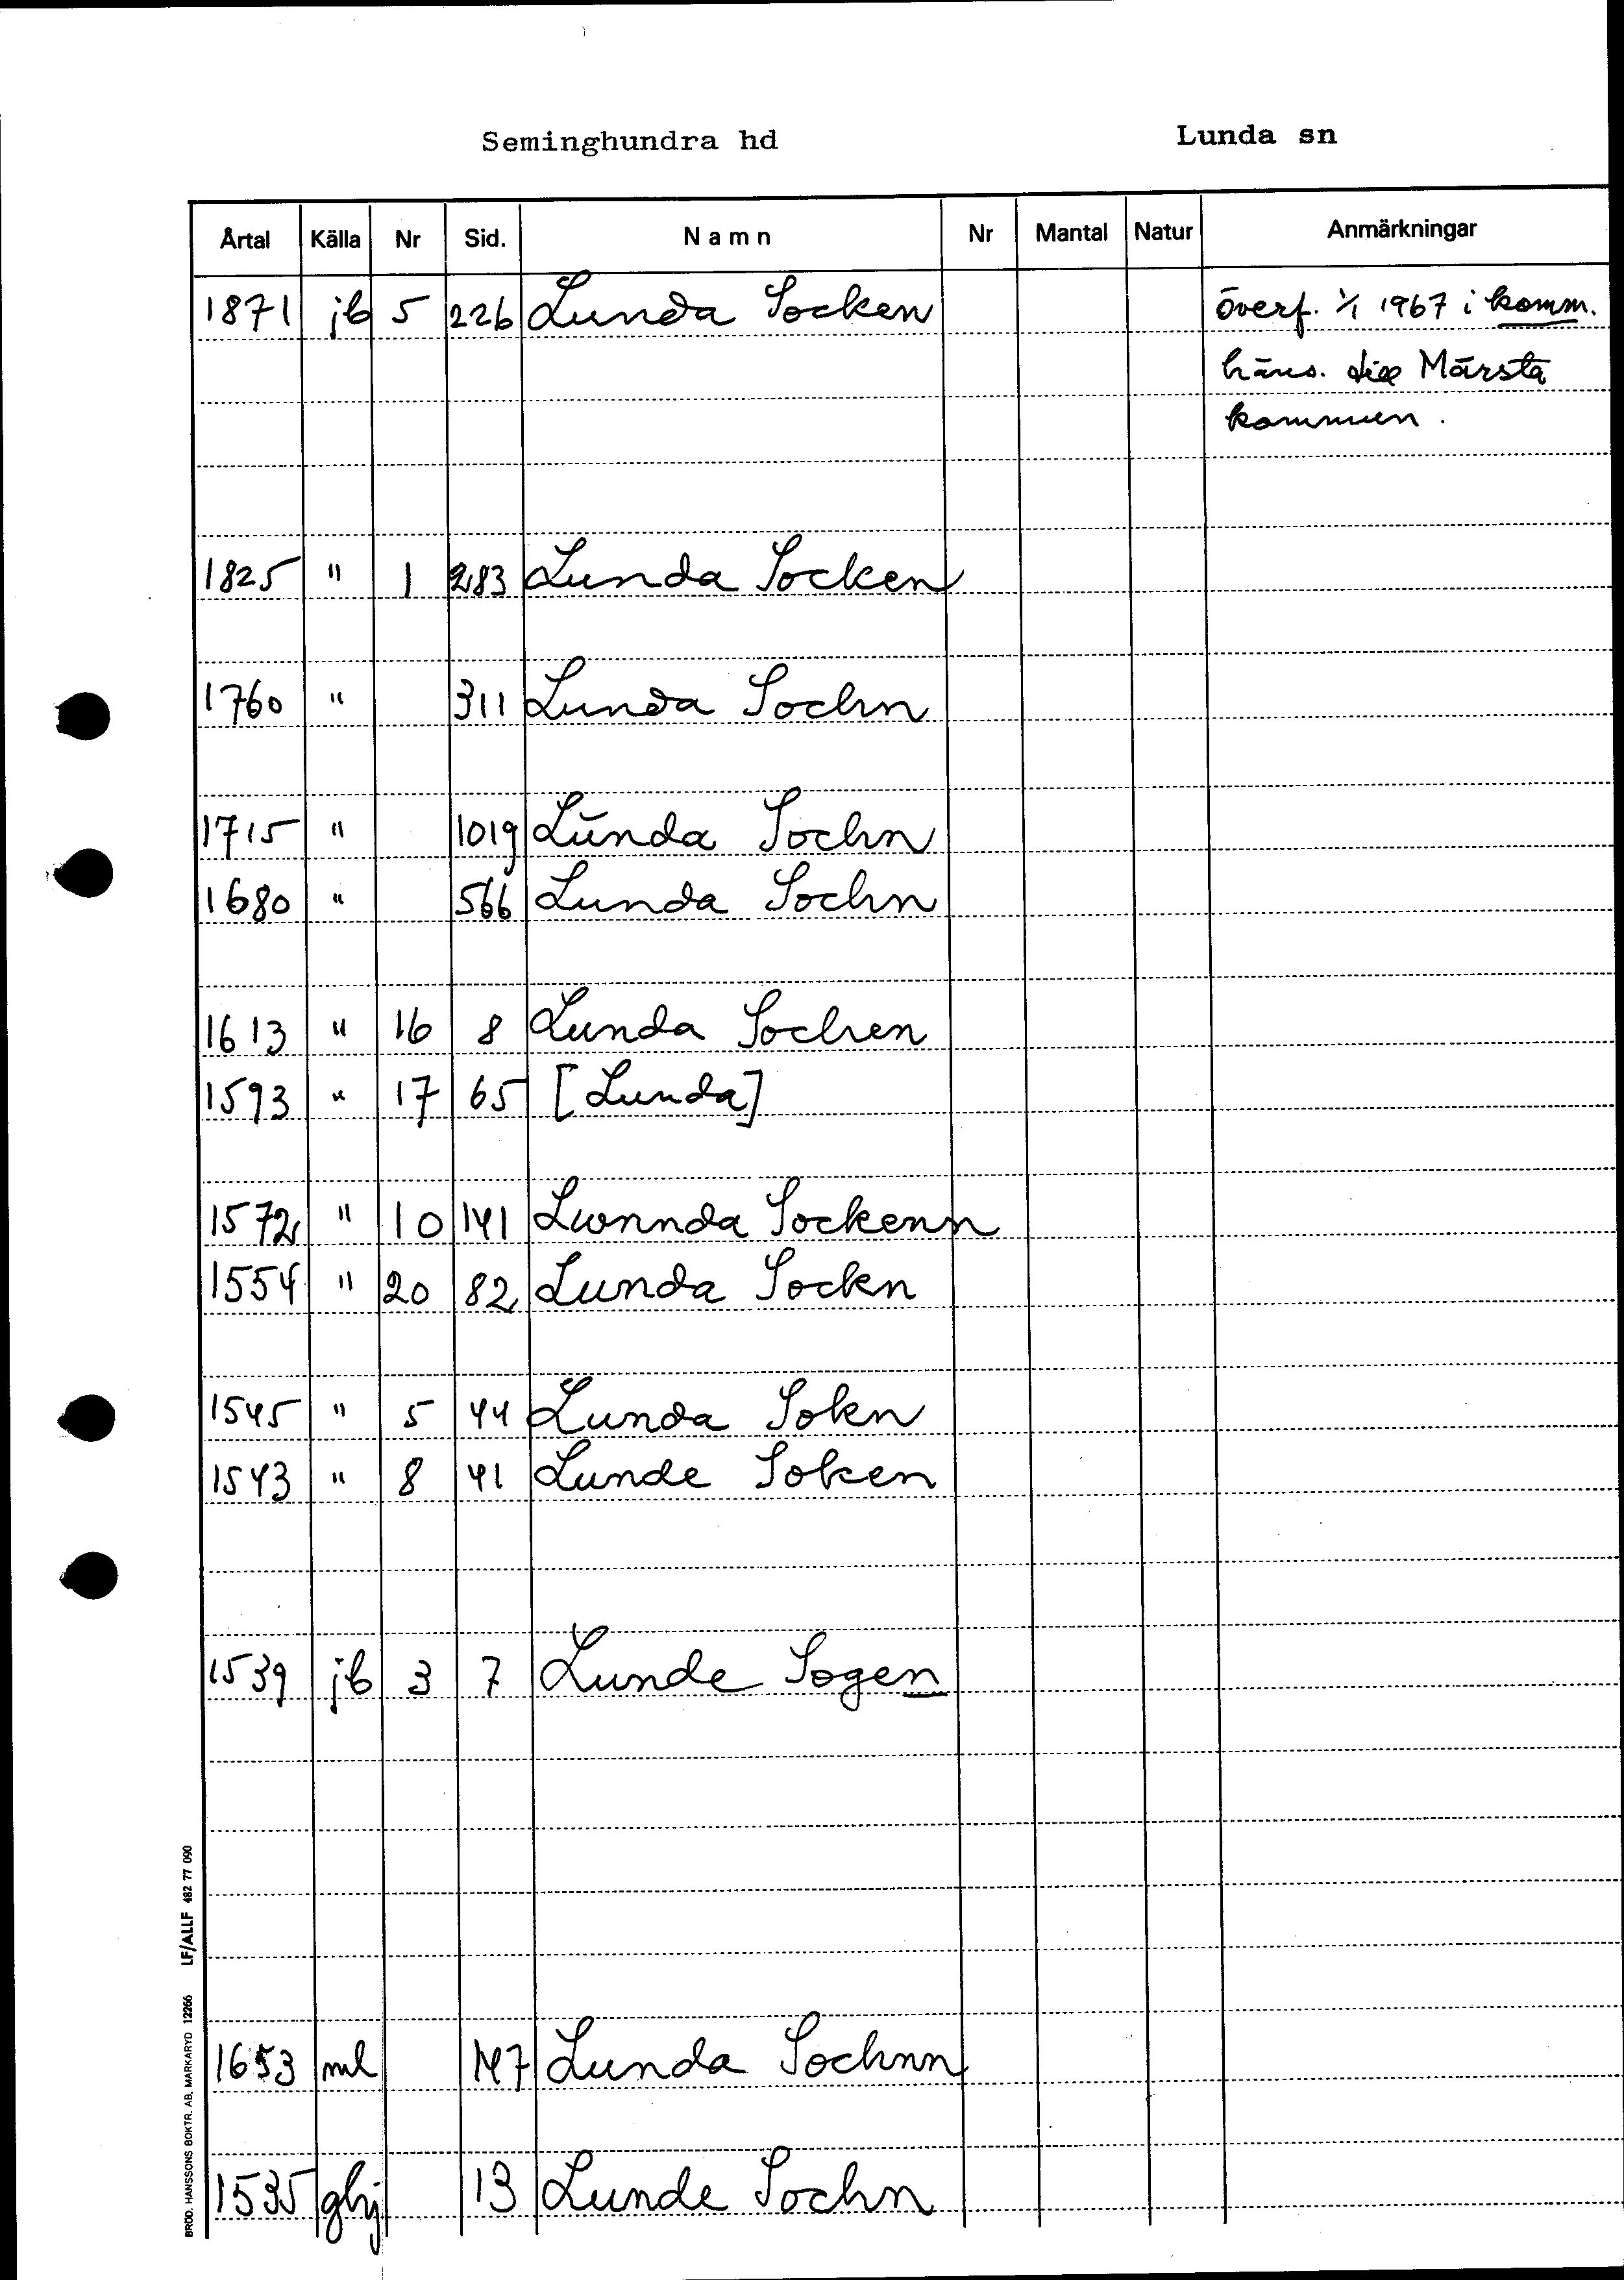 Seminghundra hd Lunda sn
Årtal Källa Nr Sid. Namn Nr Mantal Natur Anmärkningar
1871 jb 5 226 Lunda Socken överf. 1/1 1967 i komm.
häns. till Märsta
kommun.
1825 " 1 283 Lunda Socken
1760 " 311 Lunda Sochn
1715 " 1019 Lŭnda Sochn
1680 " 566 Lunda Sochn
1613 " 16 8 Lunda Sochen
1593 " 17 65 [Lunda]
1572 " 10 141 Lwnnda Sockenn
1554 " 20 82 Lunda Sockn
1545 " 5 44 Lunda Sokn
1543 " 8 41 Lunde Soken
1539 jb 3 7 Lunde Sogen
1653 ml 147 Lunda Sochnn
1535 ghj 13 Lunde Sochn
BRÖD. HANSSONS BOKTR. AB, MARKARYD 12266 LF/ALLF 482 77 090